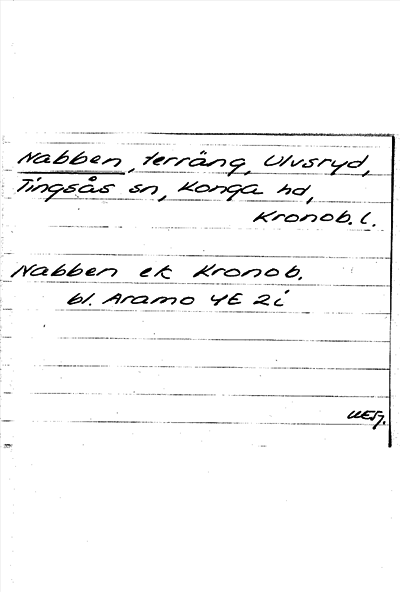 Nabben, terräng, Ulvsryd,
Tingsås sn, Konga hd,
Kronob. l.
Nabben ek Kronob.
bl. Aramo 4E 2i